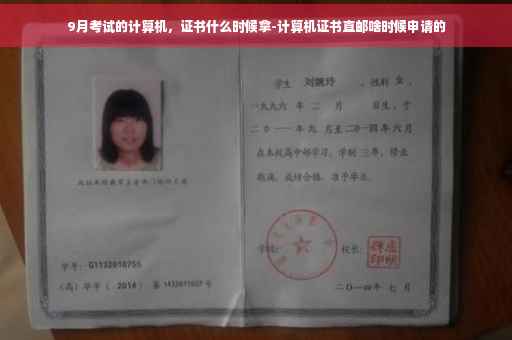 9月考试的计算机，证书什么时候拿-计算机证书直邮啥时候申请的
学生 刘婉玲 ，性别 女 ，
一九九六 年 二 月 日生，于
二0一一年 九 月至二0一四年 六 月
在本校高中部学习，学制 三年，修业
期满，成绩合格，准予毕业。
学校： 校长：
二〇一四年 七 月
学号： G1132010755
（高）毕字（ 2014 ）第 1432011027 号